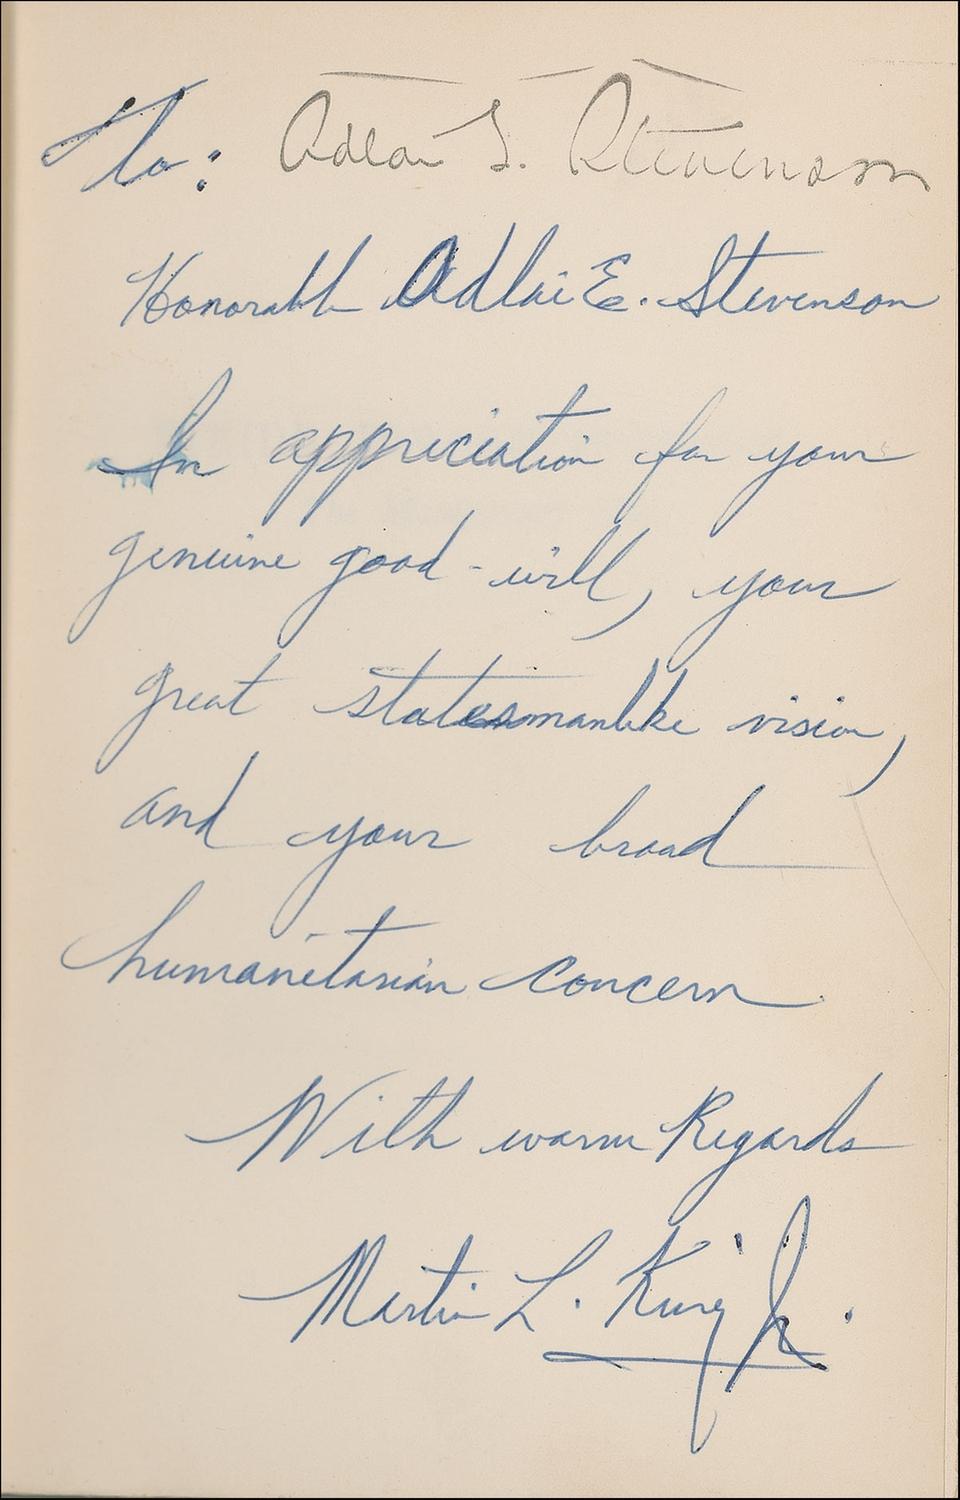 To: Adlai S. Stevenson
Honorable Adlai E. Stevenson
In appreciation for your
genuine good-will, your
great statesmanlike vision,
and your broad
humanitarian concern
With warm Regards
Martin L. King Jr.